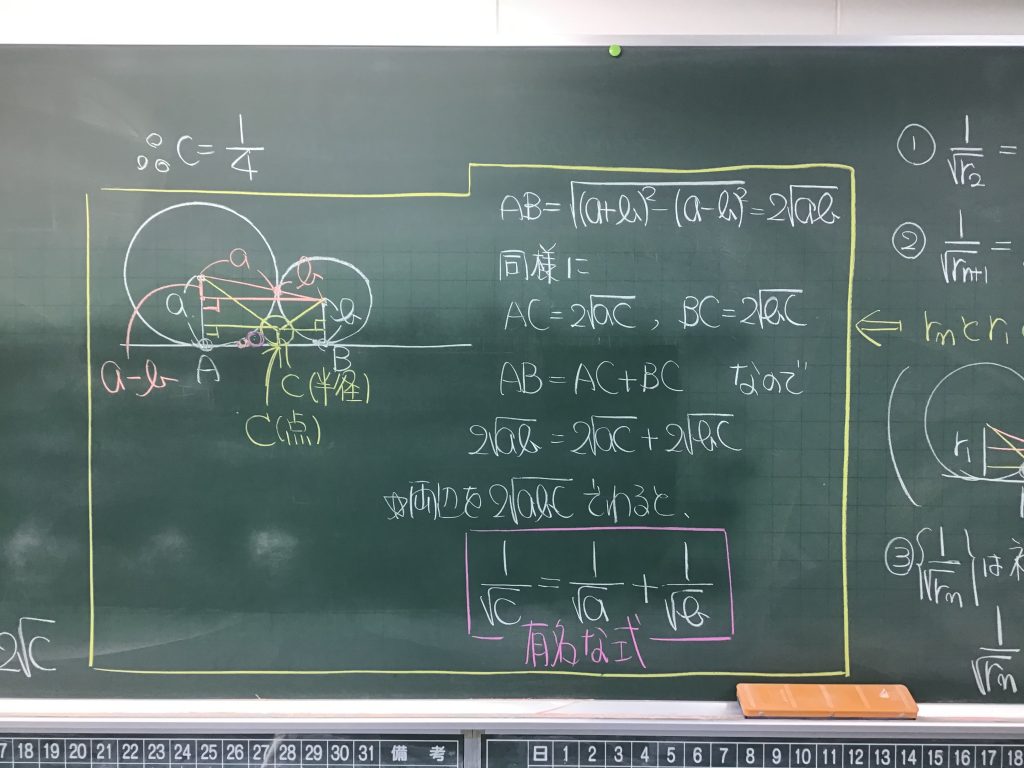 ∴ C = 1/4
a
b
a
b
a-b
A
B
C(半径)
C(点)
AB=√((a+b)²-(a-b)²)=2√ab
同様に
AC=2√ac , BC=2√bc
AB=AC+BC なので
2√ab=2√ac+2√bc
☆両辺を2√abcでわると、
1/√c = 1/√a + 1/√b
有名な式
2√c
① 1/√r₂ =
② 1/√rₙ₊₁ =
⇐ rₙとr₁
r₁
③ {1/√rₙ}は
1/√rₙ
17 18 19 20 21 22 23 24 25 26 27 28 29 30 31 備考
日 1 2 3 4 5 6 7 8 9 10 11 12 13 14 15 16 17 18